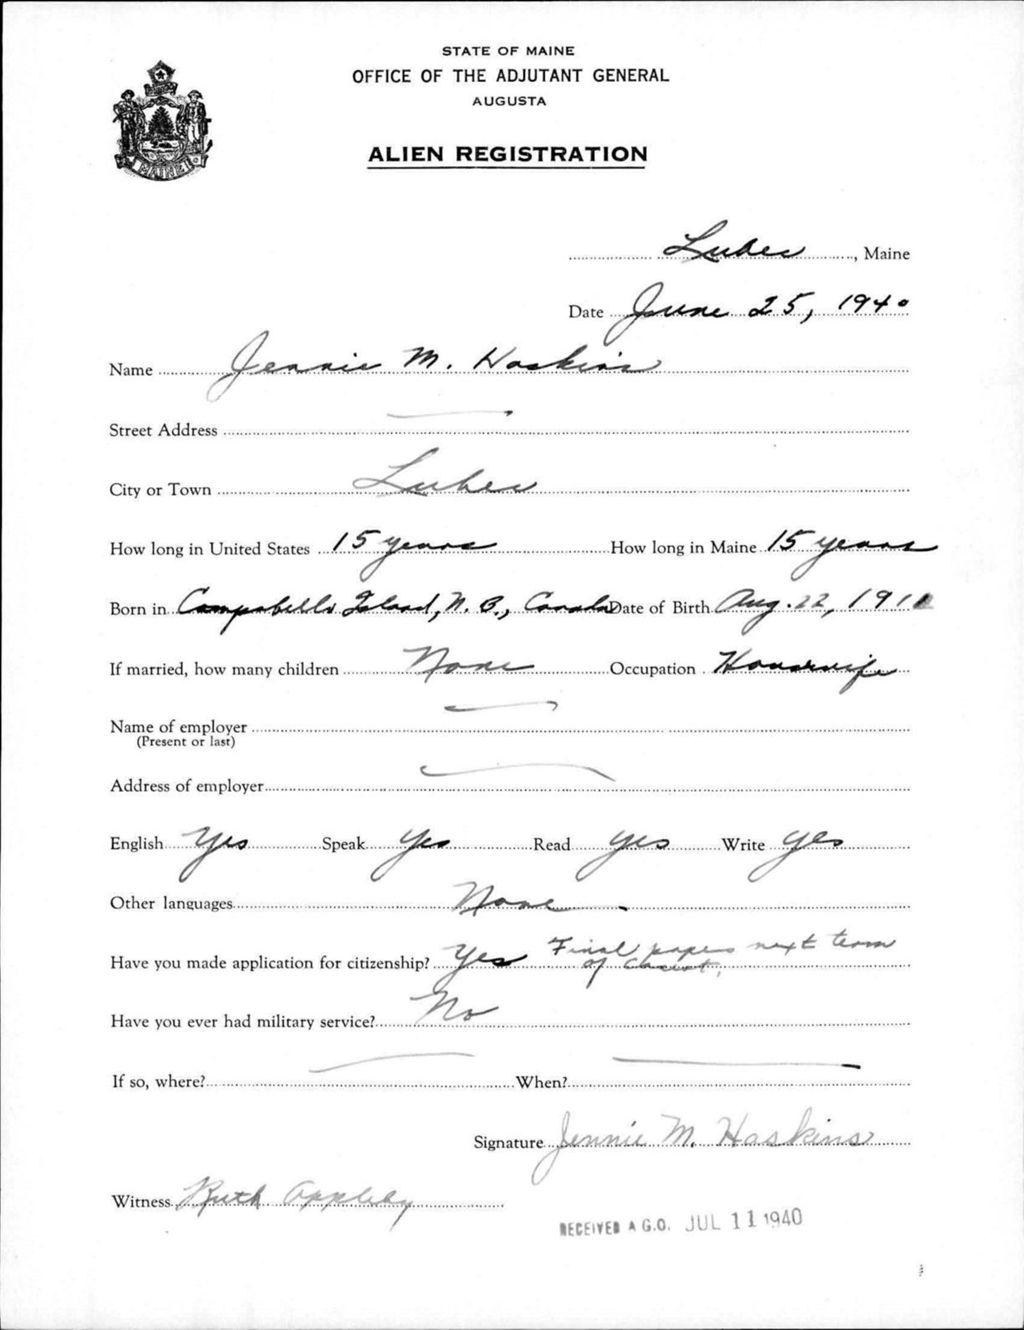 STATE OF MAINE
OFFICE OF THE ADJUTANT GENERAL
AUGUSTA
ALIEN REGISTRATION
MAINE
Lubec, Maine
Date June 25, 1940
Name Jennie M. Haskins
Street Address —
City or Town Lubec
How long in United States 15 years How long in Maine 15 years
Born in Campobello Island, N. B., Canada Date of Birth Aug. 22,
If married, how many children None Occupation Housewife
Name of employer —
(Present or last)
Address of employer —
English Yes Speak Yes Read Yes Write Yes
Other languages None.
Have you made application for citizenship? Yes Final papers next term
of Court.
Have you ever had military service? No
If so, where? — When? —
Signature Jennie M. Haskins
Witness Ruth Appleby
RECEIVED A.G.O. JUL 11 1940